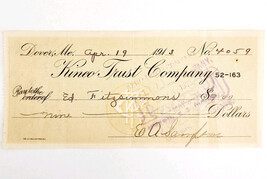 Dover, Me. Apr. 19 1913 No. 4059
Kineo Trust Company 52-163
Pay to the order of Ed. Fitzsimmons $
nine Dollars